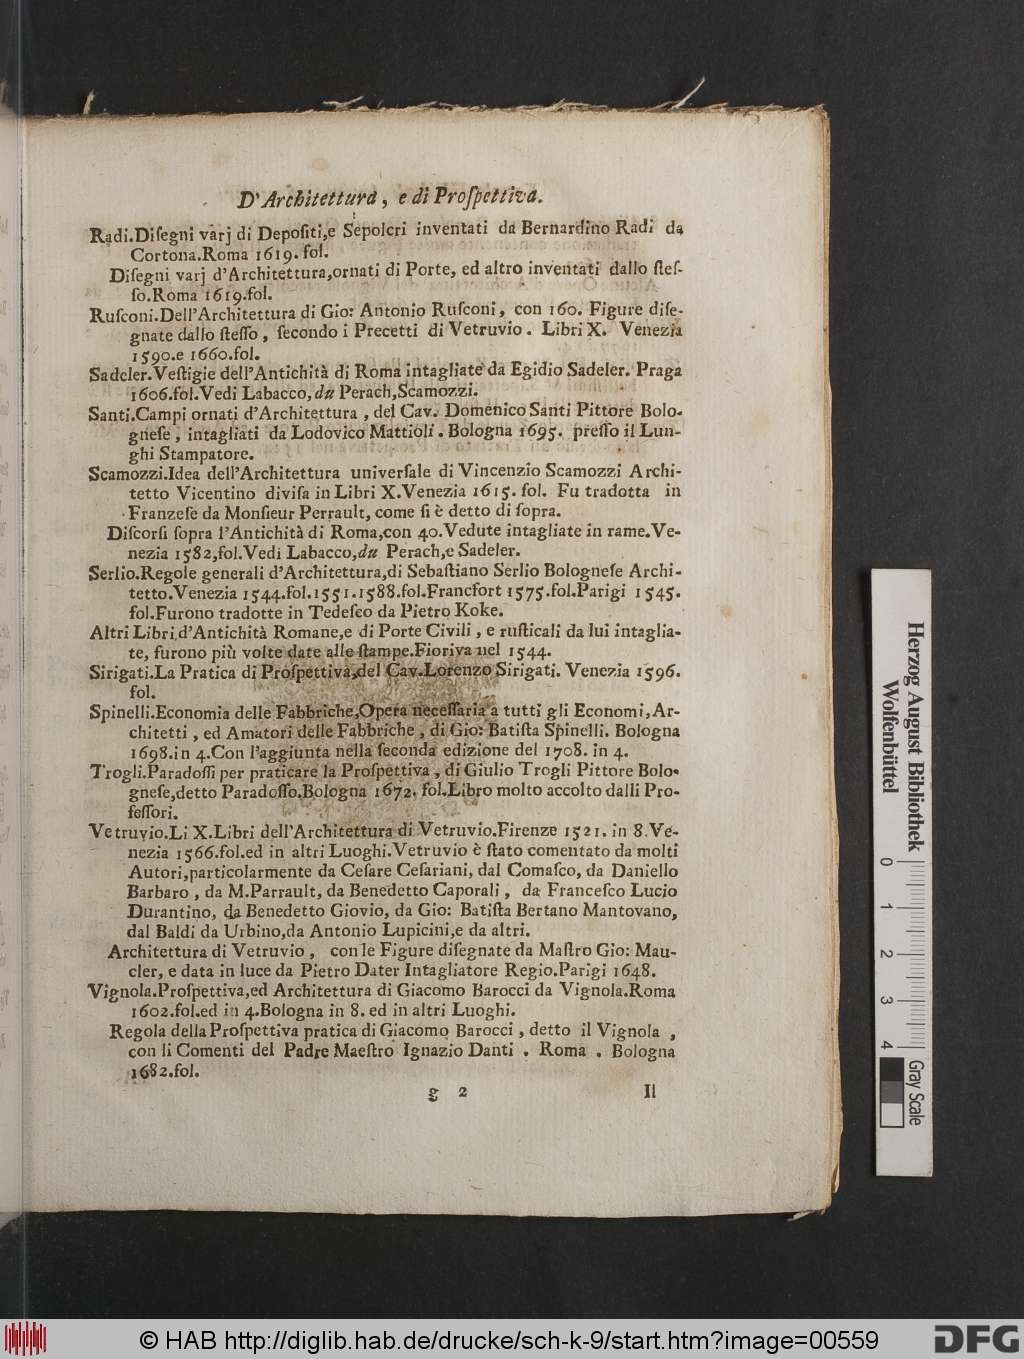 D'Architettura, e di Proſpettiva.
Radi.Diſegni varj di Depoſiti,e Sepolcri inventati da Bernardino Radi da
Cortona.Roma 1619. fol.
Diſegni varj d'Architettura,ornati di Porte, ed altro inventati dallo ſteſ-
ſo.Roma 1619.fol.
Ruſconi.Dell'Architettura di Gio: Antonio Ruſconi, con 160. Figure diſe-
gnate dallo ſteſſo, ſecondo i Precetti di Vetruvio. Libri X. Venezia
1590.e 1660.fol.
Sadeler.Veſtigie dell'Antichità di Roma intagliate da Egidio Sadeler. Praga
1606.fol.Vedi Labacco,du Perach,Scamozzi.
Santi.Campi ornati d'Architettura, del Cav. Domenico Santi Pittore Bolo-
gneſe, intagliati da Lodovico Mattioli. Bologna 1695. preſſo il Lun-
ghi Stampatore.
Scamozzi.Idea dell'Architettura univerſale di Vincenzio Scamozzi Archi-
tetto Vicentino diviſa in Libri X.Venezia 1615. fol. Fu tradotta in
Franzeſe da Monſieur Perrault, come ſi è detto di ſopra.
Diſcorſi ſopra l'Antichità di Roma,con 40.Vedute intagliate in rame.Ve-
nezia 1582,fol.Vedi Labacco,du Perach,e Sadeler.
Serlio.Regole generali d'Architettura,di Sebaſtiano Serlio Bologneſe Archi-
tetto.Venezia 1544.fol.1551.1588.fol.Francfort 1575.fol.Parigi 1545.
fol.Furono tradotte in Tedeſco da Pietro Koke.
Altri Libri d'Antichità Romane,e di Porte Civili, e ruſticali da lui intaglia-
te, furono più volte date alle ſtampe.Fioriva nel 1544.
Sirigati.La Pratica di Proſpettiva,del Cav.Lorenzo Sirigati. Venezia 1596.
fol.
Spinelli.Economia delle Fabbriche,Opera neceſſaria a tutti gli Economi,Ar-
chitetti, ed Amatori delle Fabbriche, di Gio: Batiſta Spinelli. Bologna
1698.in 4.Con l'aggiunta nella ſeconda edizione del 1708. in 4.
Trogli.Paradoſſi per praticare la Proſpettiva, di Giulio Trogli Pittore Bolo-
gneſe,detto Paradoſſo.Bologna 1672. fol.Libro molto accolto dalli Pro-
feſſori.
Vetruvio.Li X.Libri dell'Architettura di Vetruvio.Firenze 1521. in 8.Ve-
nezia 1566.fol.ed in altri Luoghi.Vetruvio è ſtato comentato da molti
Autori,particolarmente da Ceſare Ceſariani, dal Comaſco, da Daniello
Barbaro, da M.Parrault, da Benedetto Caporali, da Franceſco Lucio
Durantino, da Benedetto Giovio, da Gio: Batiſta Bertano Mantovano,
dal Baldi da Urbino,da Antonio Lupicini,e da altri.
Architettura di Vetruvio, con le Figure diſegnate da Maſtro Gio: Mau-
cler, e data in luce da Pietro Dater Intagliatore Regio.Parigi 1648.
Vignola.Proſpettiva,ed Architettura di Giacomo Barocci da Vignola.Roma
1602.fol.ed in 4.Bologna in 8. ed in altri Luoghi.
Regola della Proſpettiva pratica di Giacomo Barocci, detto il Vignola,
con li Comenti del Padre Maeſtro Ignazio Danti. Roma. Bologna
1682.fol.
g 2 Il
Herzog August Bibliothek
Wolfenbüttel
0 1 2 3 4
Gray Scale
© HAB http://diglib.hab.de/drucke/sch-k-9/start.htm?image=00559
DFG